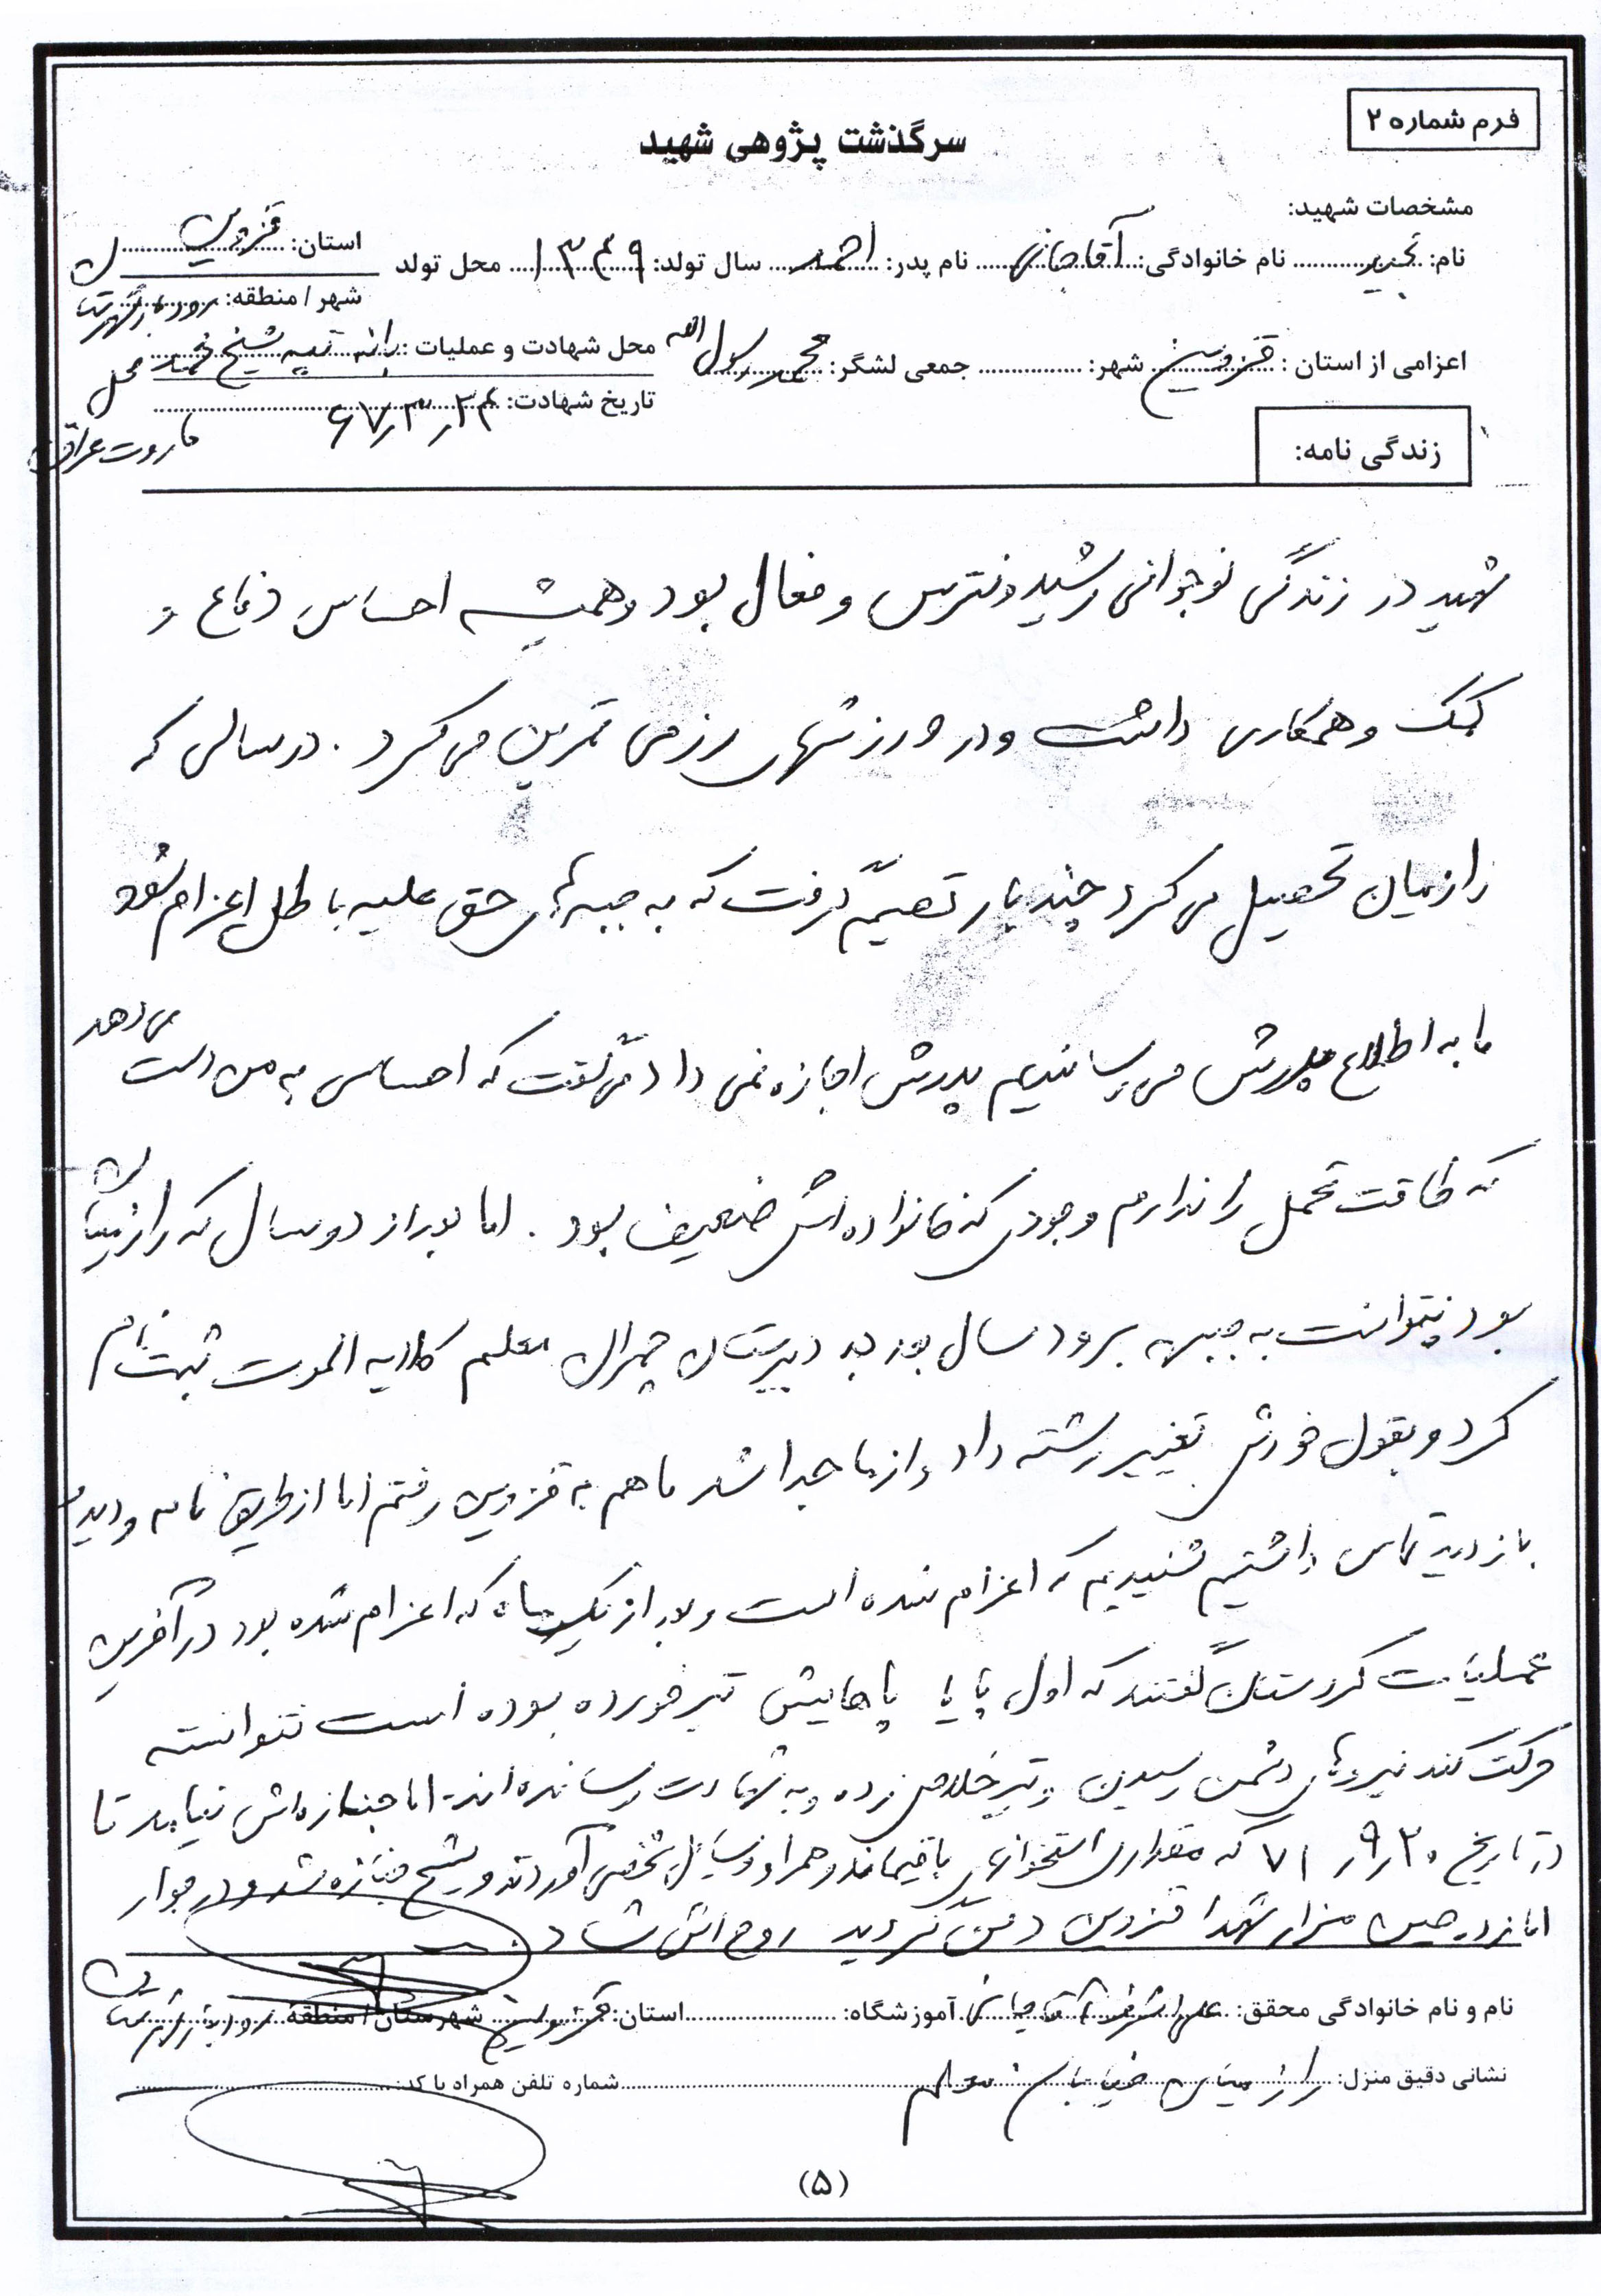 فرم شماره ۲
سرگذشت پژوهی شهید
مشخصات شهید:
نام: نام خانوادگی: آقاجانی نام پدر: احمد سال تولد: ۱۳۴۹ محل تولد استان: قزوین
شهر / منطقه: رودبار شهرستان
اعزامی از استان: قزوین شهر: جمعی لشگر: محمد رسول الله محل شهادت و عملیات: بانه تپه شیخ محمد محل
تاریخ شهادت: ۶۷٫۳٫۲۴ ماروت عراق
زندگی نامه:
شهید در زندگی نوجوانی رشید و نترس و فعال بود و همیشه احساس دفاع و
کمک و همکاری داشت و در ورزشهای رزمی تمرین می کرد. در سالی که
رازمیان تحصیل می کرد چند بار تصمیم گرفت که به جبهه های حق علیه باطل اعزام شود
ما به اطلاع پدرش می رساندیم پدرش اجازه نمی داد می گفت که احساس به من دست می دهد
که طاقت تحمل را ندارم وجودی که خانواده اش ضعیف بود. اما بعد از دو سال که رازمیان
بود نتوانست به جبهه برود سال بعد به دبیرستان چمران معلم کلایه الموت ثبت نام
کرد و بقول خودش تغییر رشته داد و از ما جدا شد ما هم به قزوین رفتم اما از طریق نامه و دید و
بازدید تماس داشتیم شنیدیم که اعزام شده است و بعد از یک ماه که اعزام شده بود در آخرین
عملیات کردستان گفتند که اول پا یا پاهایش تیر خورده بوده است نتوانسته
حرکت کند نیروهای دشمن رسیدن و تیر خلاص زده و به شهادت رسانده اند اما جنازه اش نیامد تا
در تاریخ ۷۱٫۹٫۲۰ که مقداری استخوانهای باقیمانده همراه وسایل شخصی آوردند و تشیع جنازه شد و در جوار
امامزاده حسین مزار شهدا قزوین دفن گردید روح اش شاد
نام و نام خانوادگی محقق: علی اشرف آقاجانی آموزشگاه: استان: قزوین شهرستان / منطقه رودبار شهرستان
نشانی دقیق منزل: رازمیان خیابان معلم شماره تلفن همراه با کد:
(۵)